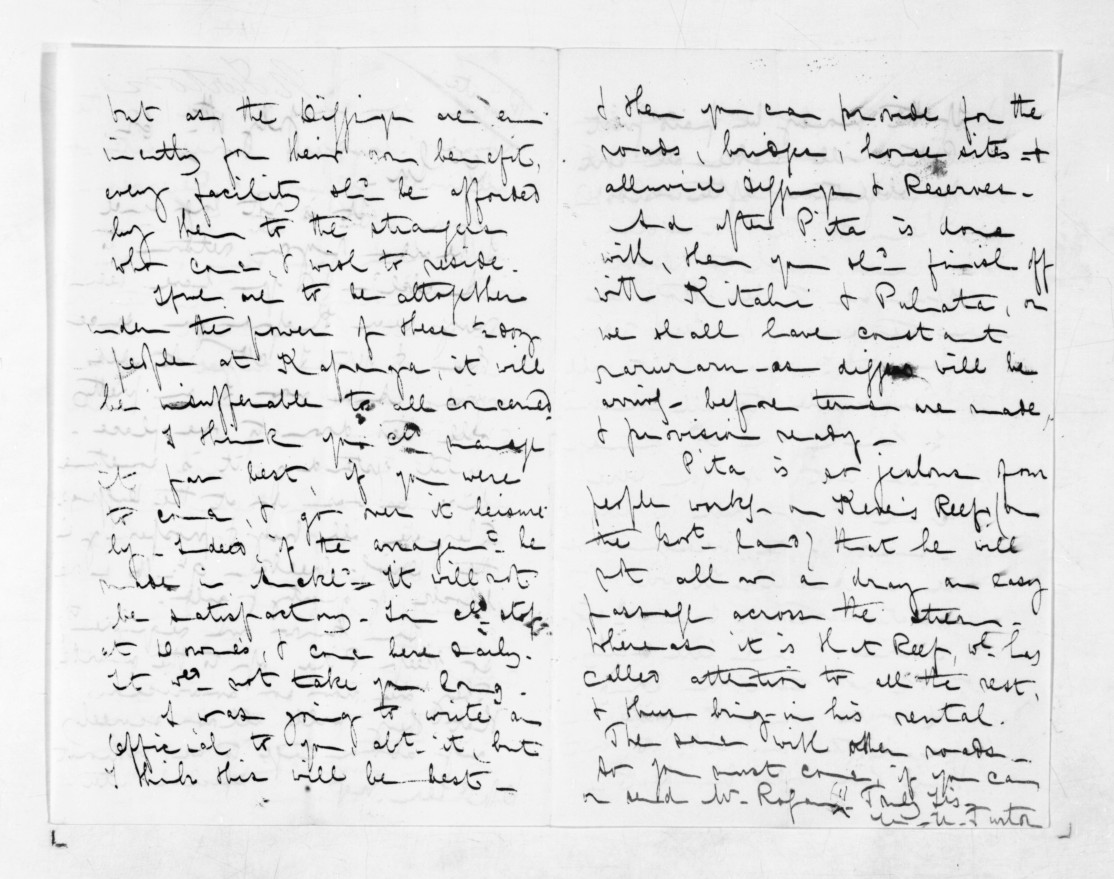 but as the Diggings are em-
inently for their own benefit,
every facility shd be afforded
by them to the strangers
who come, & wish to reside.
If we are to be altogether
under the power of these
people at Kapanga, it will
be insufferable to all concerned.
I think you cd manage
it far best, if you were
to come, & go over it leisure-
ly - Indeed, if the arrangemt be
made in Auckld - It will not
be satisfactory. You cd stop
at Downes, & come here daily.
It wd not take you long.
I was going to write an
official to you abt it, but
I think this will be best -
& then you can provide for the
roads, bridges, house sites &
alluvial diggings & Reserves.
And after Pita is done
with, then you shd finish off
with Kitahi & Puhata, or
we shall have constant
raruraru - as diggers will be
arrivg - before terms are made,
& provision ready -
Pita is so jealous from
people workg - on Keven's Reef, (on
the Govt land) that he will
not allow a dray an easy
passage across the stream -
Whereas it is that Reef, wh has
called attention to all the rest,
& thus bring in his rental.
The same with other roads -
So you must come, if you can
or send Mr. Rogan(!) Truly Yrs
H. H. Turton